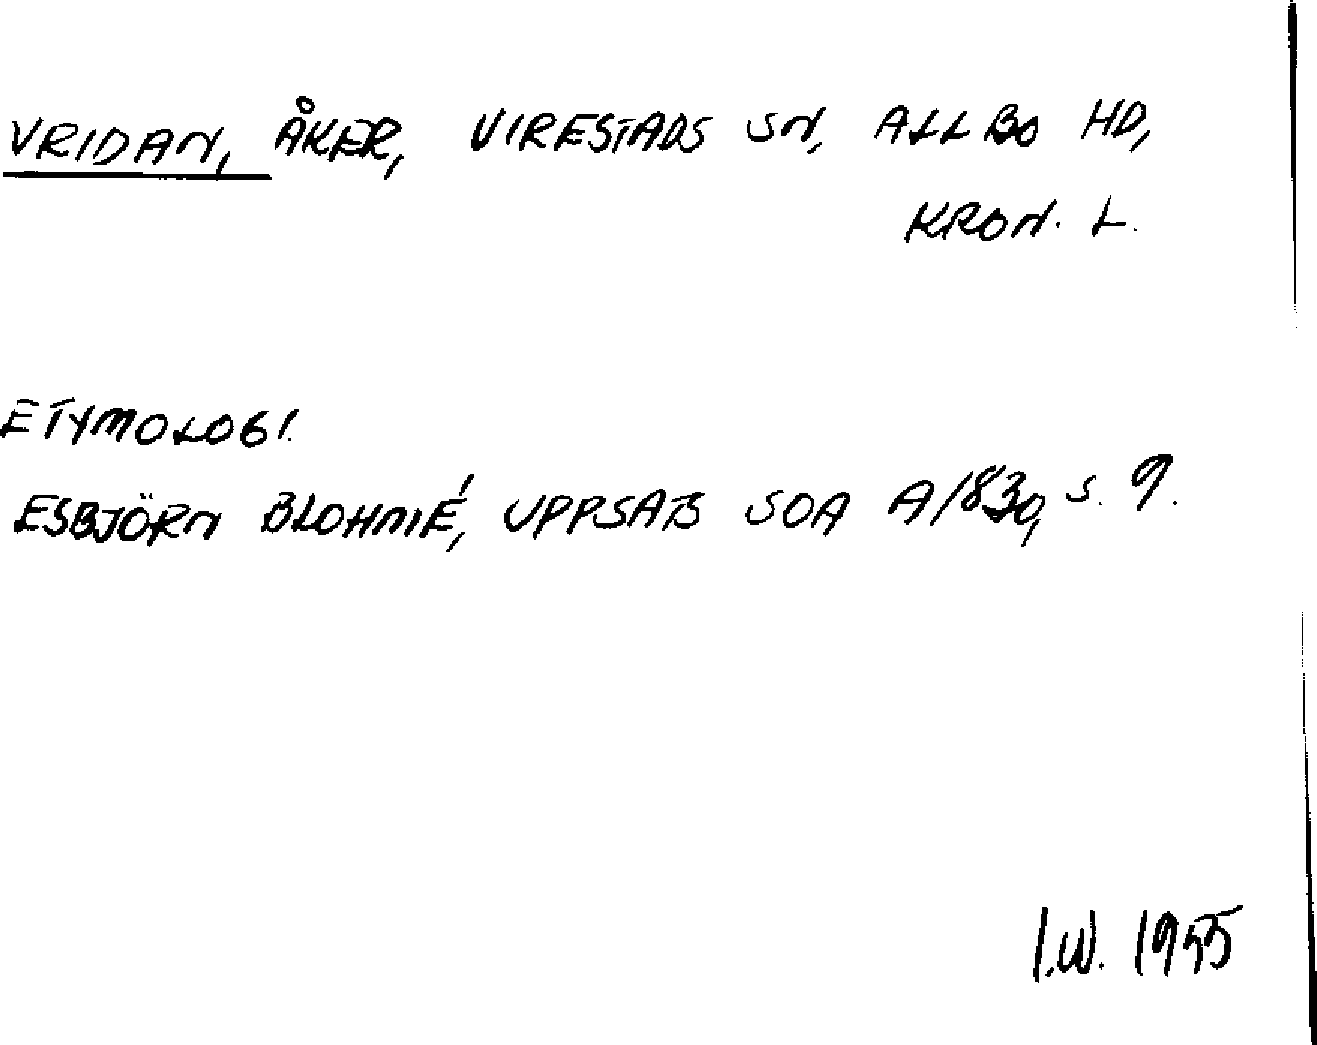 VRIDAN, ÅKER, VIRESTADS SN, ALLBO HD,
KRON. L.
ETYMOLOGI.
ESBJÖRN BLOHMÉ, UPPSATS SOA A/830, S. 9.
I.W. 1955